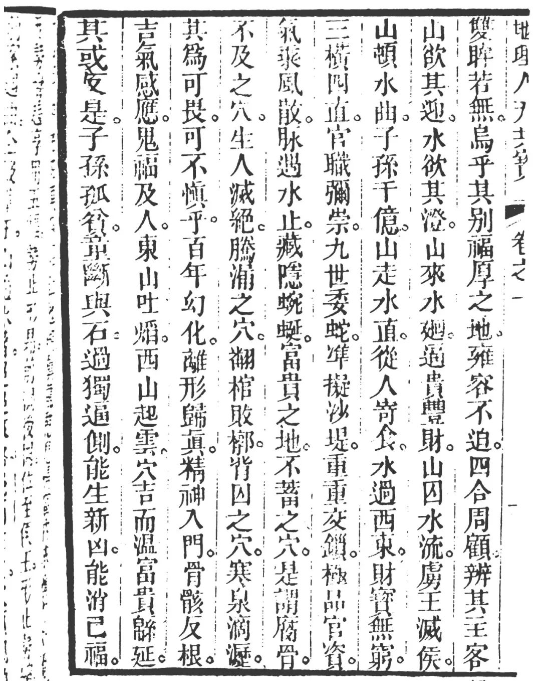 地理人天共寶 卷之一
雙眸若無。烏乎其別。福厚之地。雍容不迫。四合周顧。辨其主客
山欲其迎。水欲其澄。山來水廻。逼貴豐財。山囚水流。虜王滅侯。
山頓水曲。子孫千億。山走水直。從人寄食。水過西東。財寶無窮
三橫四直。官職彌崇。九世委蛇。準擬沙堤。重重交鎖。極品官資。
氣乘風散。脉遇水止。藏隱蜿蜒。富貴之地。不蓄之穴。是謂腐骨
不及之穴。生人滅絕。騰漏之穴。翻棺敗槨。背囚之穴。寒泉滴瀝。
其為可畏。可不慎乎。百年幻化。離形歸眞。精神入門。骨骸反根
吉氣感應。鬼福及人。東山吐熖。西山起雲。穴吉而溫。富貴緜延
其或反是。子孫孤貧。童斷與石。過獨逼側。能生新凶。能消已福。